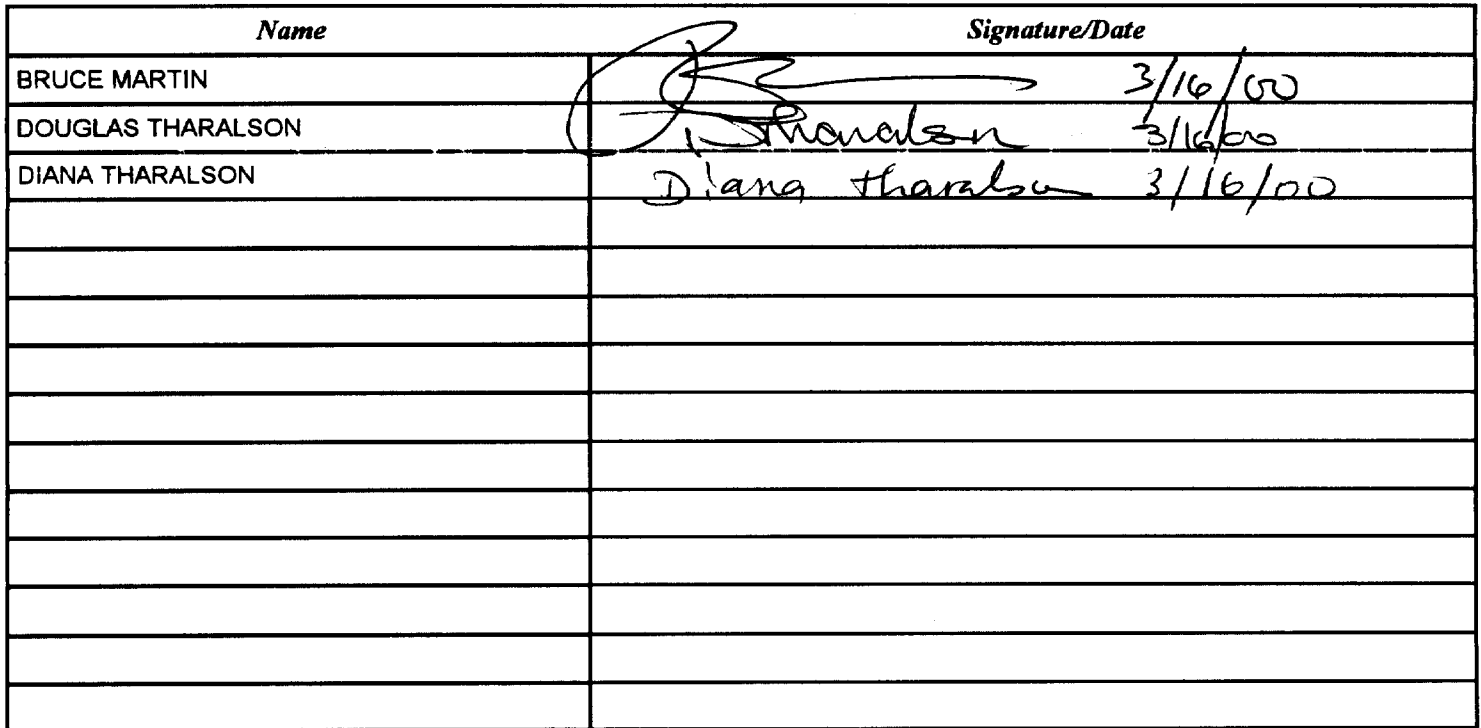 Name Signature/Date
BRUCE MARTIN 3/16/00
DOUGLAS THARALSON DTharalson 3/16/00
DIANA THARALSON Diana Tharalson 3/16/00